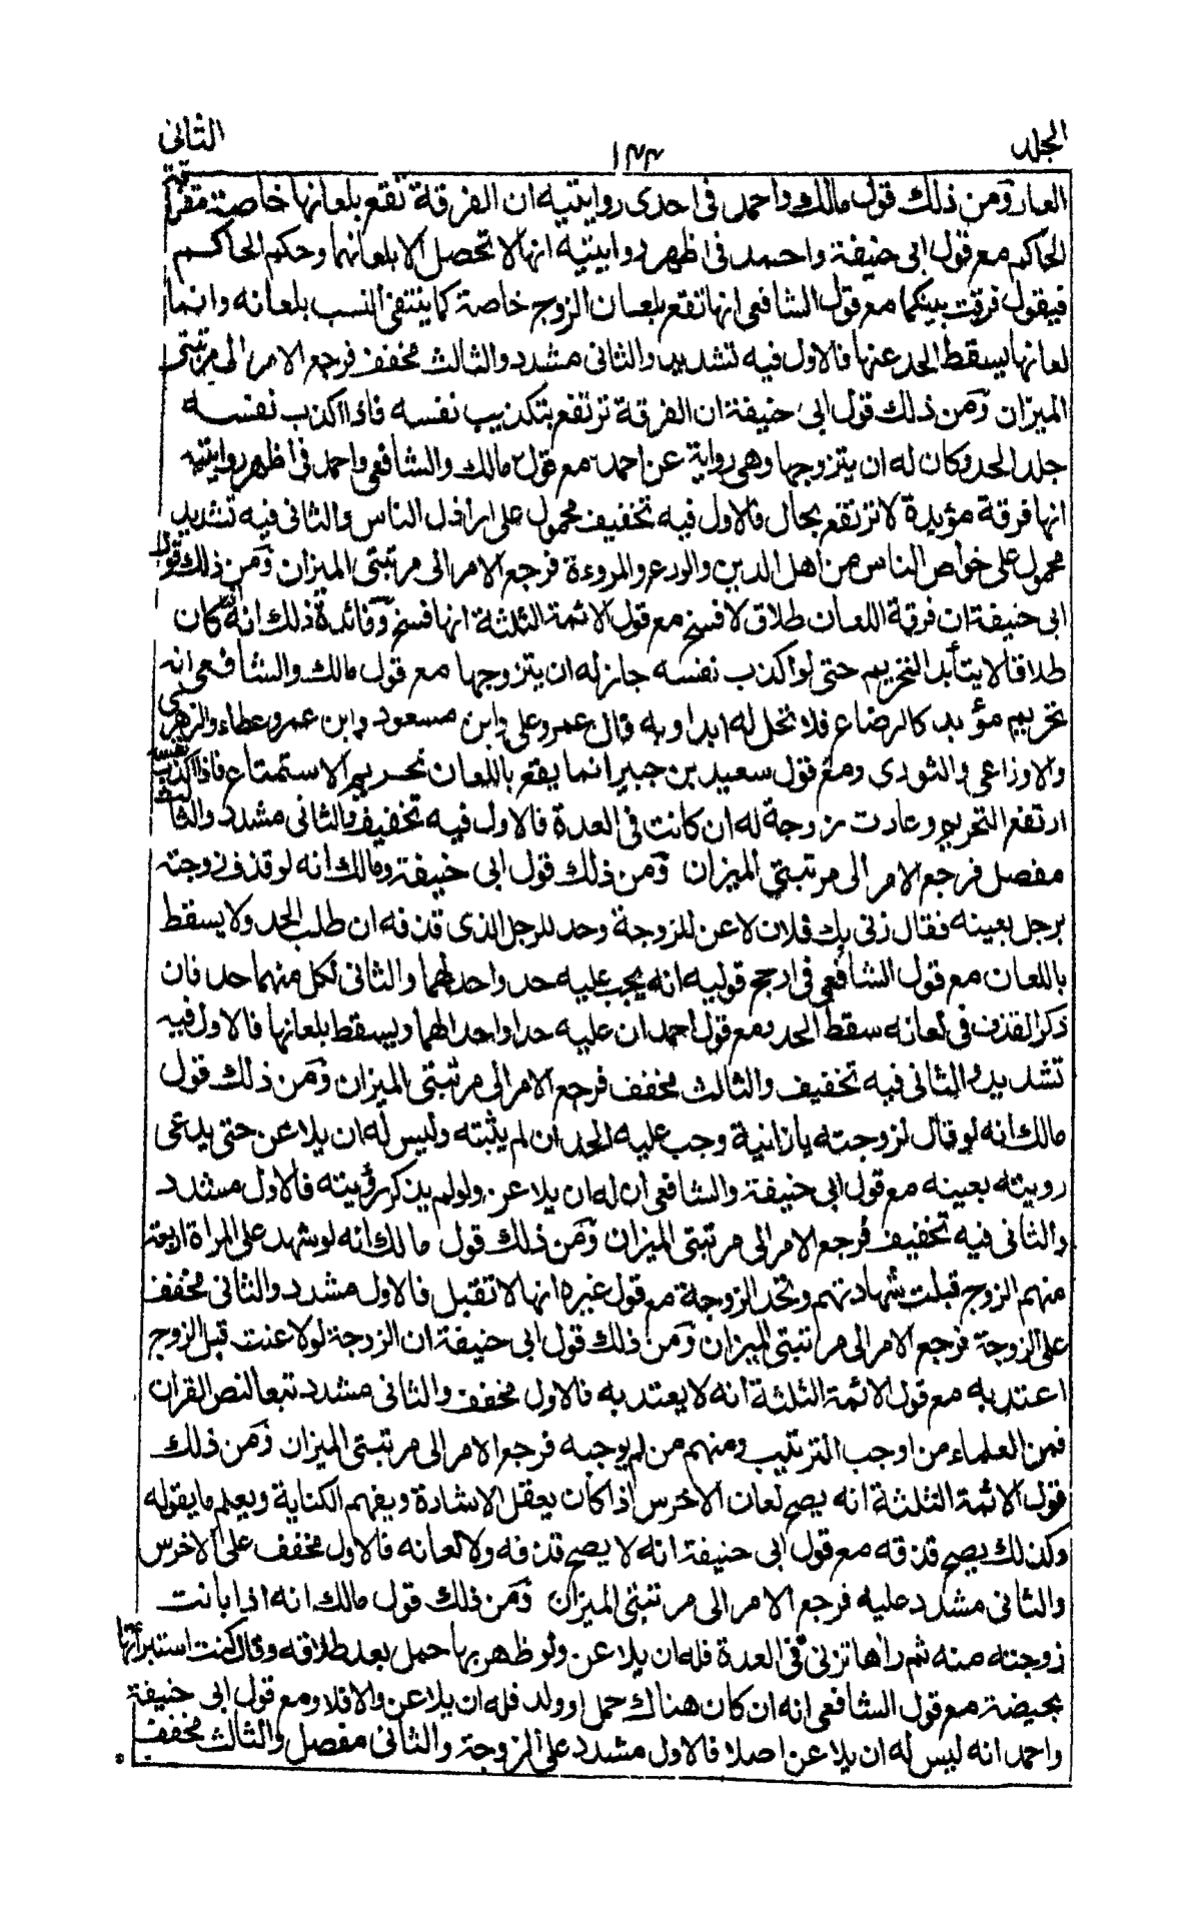 الجلد ١٤٣ الثانى
العار ومن ذلك قول مالك واحمد فى احدى روايتيه ان الفرقة تقع بلعانها خاصة
الحاكم مع قول ابى حنيفة واحمد فى اظهر روايتيه انها لا تحصل الا بلعانهما وحكم الحاكم
فيقول فرقت بينكما مع قول الشافعى انها تقع بلعان الزوج خاصة كما ينتفى النسب بلعانه وانما
لعانها يسقط الحد عنها فالاول فيه تشديد والثانى مشدد والثالث مخفف فرجع الامر الى مرتبتى
الميزان ومن ذلك قول ابى حنيفة ان الفرقة ترتفع بتكذيب نفسه فاذا اكذب نفسه
جلد الحد وكان له ان يتزوجها وهى رواية عن احمد مع قول مالك والشافعى واحمد فى اظهر روايتيه
انها فرقة مؤبدة لا ترتفع بحال فالاول فيه تخفيف محمول على اراذل الناس والثانى فيه تشديد
محمول على خواص الناس من اهل الدين والورع والمروءة فرجع الامر الى مرتبتى الميزان ومن ذلك قول
ابى حنيفة ان فرقة اللعان طلاق لا فسخ مع قول الائمة الثلثة انها فسخ وفائدة ذلك انه ان كان
طلاقا لا يتأبد التحريم حتى لو اكذب نفسه جاز له ان يتزوجها مع قول مالك والشافعى انه
تحريم مؤبد كالرضاع فلا تحل له ابدا وبه قال عمر وعلى وابن مسعود وابن عمر وعطاء والزهرى
والاوزاعى والثورى ومع قول سعيد بن جبير انما يقع باللعان تحريم الاستمتاع فاذا اكذب نفسه
ارتفع التحريم وعادت زوجة له ان كانت فى العدة فالاول فيه تخفيف والثانى مشدد والثالث
مفصل فرجع الامر الى مرتبتى الميزان ومن ذلك قول ابى حنيفة ومالك انه لو قذف زوجته
برجل بعينه فقال زنى بك فلان لاعن للزوجة وحد للرجل الذى قذفه ان طلب الحد ولا يسقط
باللعان مع قول الشافعى فى ارجح قوليه انه يجب عليه حد واحد لهما والثانى لكل منهما حد فان
ذكر القذف فى لعانه سقط الحد ومع قول احمد ان عليه حدا واحدا لهما ويسقط بلعانها فالاول فيه
تشديد والثانى فيه تخفيف والثالث مخفف فرجع الامر الى مرتبتى الميزان ومن ذلك قول
مالك انه لو قال لزوجته يا زانية وجب عليه الحد ان لم يثبته وليس له ان يلاعن حتى يدعى
رويته بعينه مع قول ابى حنيفة والشافعى ان له ان يلاعن ولو لم يذكر رؤيته فالاول مشدد
والثانى فيه تخفيف فرجع الامر الى مرتبتى الميزان ومن ذلك قول مالك انه لو شهد على المراة اربعة
منهم الزوج قبلت شهادتهم وتحد الزوجة مع قول غيره انها لا تقبل فالاول مشدد والثانى مخفف
على الزوجة فرجع الامر الى مرتبتى الميزان ومن ذلك قول ابى حنيفة ان الزوجة لو لاعنت قبل الزوج
اعتد به مع قول الائمة الثلثة انه لا يعتد به فالاول مخفف والثانى مشدد تبعا لنص القران
فمن العلماء من اوجب الترتيب ومنهم من لم يوجبه فرجع الامر الى مرتبتى الميزان ومن ذلك
قول الائمة الثلثة انه يصح لعان الاخرس اذا كان يعقل الاشارة ويفهم الكتابة ويعلم ما يقوله
وكذلك يصح قذفه مع قول ابى حنيفة انه لا يصح قذفه ولا لعانه فالاول مخفف على الاخرس
والثانى مشدد عليه فرجع الامر الى مرتبتى الميزان ومن ذلك قول مالك انه اذا بانت
زوجته منه ثم راها تزنى فى العدة فله ان يلاعن ولو ظهر بها حمل بعد طلاقه وقال كنت استبرأتها
بحيضة مع قول الشافعى انه ان كان هناك حمل او ولد فله ان يلاعن والا فلا ومع قول ابى حنيفة
واحمد انه ليس له ان يلاعن اصلا فالاول مشدد على الزوجة والثانى مفصل والثالث مخفف